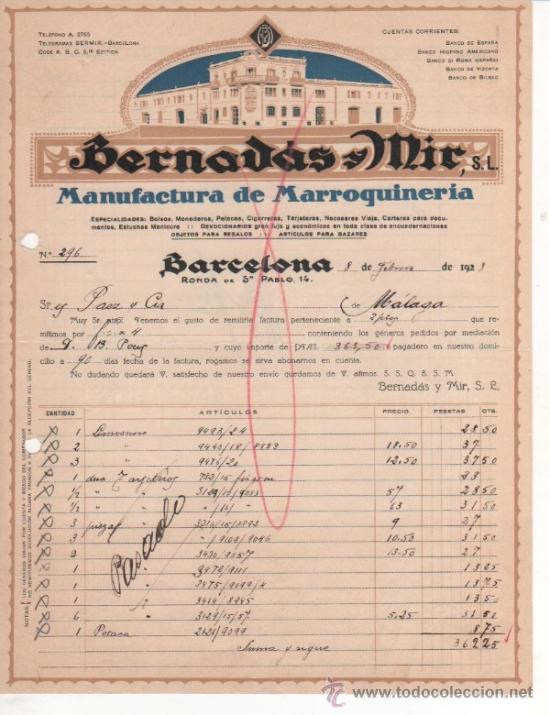 TELÉFONO A. 2765
TELEGRAMAS BERMIR.-BARCELONA
CODE A. B. C. 5.ª EDITION
CUENTAS CORRIENTES:
BANCO DE ESPAÑA
BANCO HISPANO AMERICANO
BANCO DI ROMA (ESPAÑA)
BANCO DE VIZCAYA
BANCO DE BILBAO
Bernadás y Mir, S.L.
Manufactura de Marroquineria
ESPECIALIDADES: Bolsos, Monederos, Petacas, Cigarreras, Tarjeteras, Necesares Viaje, Carteras para docu-
mentos, Estuches Manicure :: DEVOCIONARIOS gran lujo y económicos en toda clase de encuadernaciones
OBJETOS PARA REGALOS :: ARTÍCULOS PARA BAZARES
N.º 296
Barcelona 8 de Febrero de 1923
RONDA DE Sⁿ PABLO, 14.
Sr. y Paez y Cia de Málaga
Muy Sr. mío: Tenemos el gusto de remitirle factura perteneciente a que re-
mitimos por conteniendo los géneros pedidos por mediación
de D. B. Pouy y cuyo importe de PTAS. 362,50 pagadero en nuestro domi-
cilio a 90 días fecha de la factura, rogamos se sirva abonarnos en cuenta.
No dudando quedará V. satisfecho de nuestro envío quedamos de V. afmos. S. S. Q. B. S. M.
Bernadás y Mir, S. L.
CANTIDAD ARTÍCULOS PRECIO PESETAS CTS.
1 9493/24 28 50
2 " 9440/18/8983 18.50 37
3 " 9476/20 12.50 37 50
1 Tarjeteros 782/15 33
1/2 " " 57 28 50
1/2 " " /14/ 63 31 50
3 piezas 3216/15/8893 9 27
3 " " /9109/9046 10.50 31 50
2 " 3430/9057 13.50 27
1 " 3472/9111 13 25
1 " 3475/9099/4 13 75
1 " 3414/8945 13 50
6 " 3129/15/57 5.25 31 50
1 Petaca 2421/9099 8 75
Suma y sigue 362 25
Pasado
NOTAS: LOS GÉNEROS VIAJAN POR CUENTA Y RIESGO DEL COMPRADOR
www.todocoleccion.net